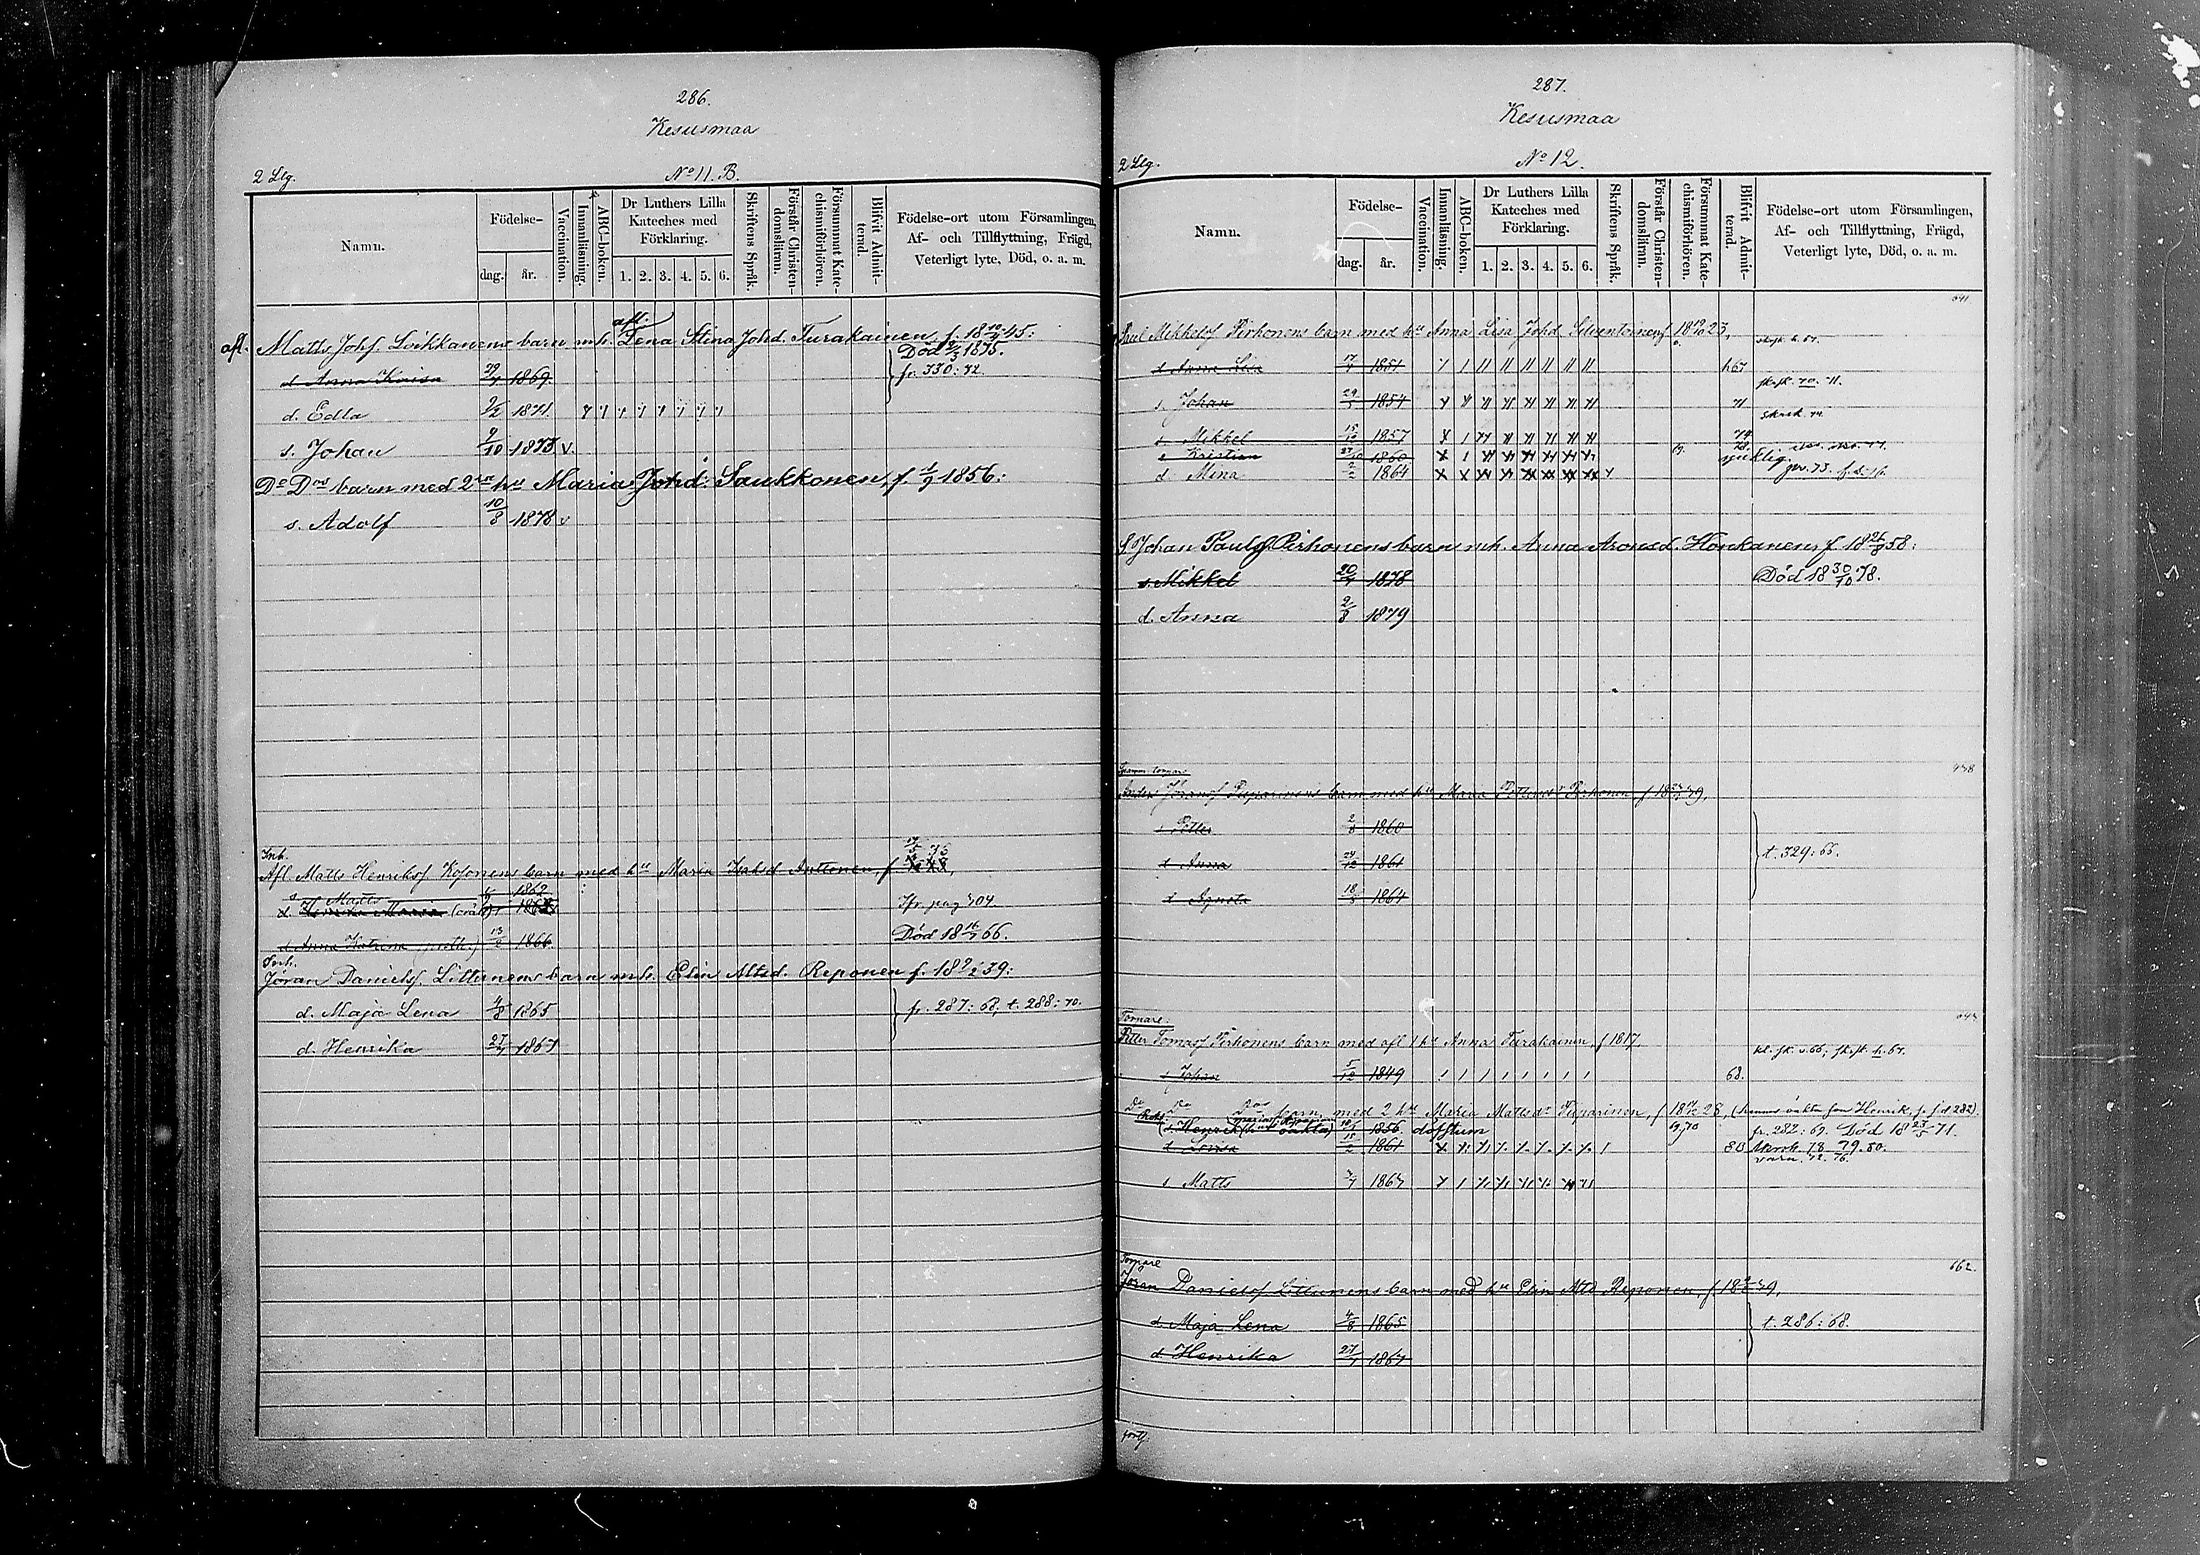 286.
Kesusmaa
2 Llg.
No 11. B.
Namn.
Födelse-
dag.
år.
Vaccination.
Innanläsning.
ABC-boken.
Dr Luthers Lilla
Kateches med
Förklaring.
1. 2. 3. 4. 5. 6.
Skriftens Språk.
Förstår Christen-
domsläran.
Försummat Kate-
chismiförhören.
Blifvit Admit-
terad.
Födelse-ort utom Församlingen,
Af- och Tillflyttning, Frägd,
Veterligt lyte, Död, o. a. m.
afl. Matts Johs Loikkanens barn m.h. afl. Lena Stina Johd. Turakainen f. 18 45:
Död 1875.
d. Anna Kaisa 1869 fr. 330: 72.
d. Edla 9/2 1871
s. Johan 9/10 1873 v.
Do Dos barn med 2dra hu Maria Johd: Saukkonen, f. 1/9 1856:
s. Adolf 10/8 1878 v
Inh.
Afl. Matts Henriksf Kosonens barn med hu Maria Isaksd Anttonen, f
s Matts 1862
Jfr. pag 704.
d. Anna Katrina 13/2 1866 Död 18 66.
Inh.
Jöran Danielsf. Littunens barn m.h. Elin Altsd. Reponen f. 18 9/2 39:
d. Maja Lena 4/8 1865 fr. 287: 68, t. 288: 70.
d. Henrika 27/7 1867
287.
Kesusmaa
2 Llg.
No 12.
Namn.
Födelse-
dag.
år.
Vaccination.
Innanläsning.
ABC-boken.
Dr Luthers Lilla
Kateches med
Förklaring.
1. 2. 3. 4. 5. 6.
Skriftens Språk.
Förstår Christen-
domsläran.
Försummat Kate-
chismiförhören.
Blifvit Admit-
terad.
Födelse-ort utom Församlingen,
Af- och Tillflyttning, Frägd,
Veterligt lyte, Död, o. a. m.
Paul Mikkelsf Pirhonens barn med hu Anna Lisa Johd Silventoinen f 18 23,
d Anna Lisa 1851 h 67
s. Johan 29 1854 71
s. Mikkel 15 1857 74
s Kristian 27/10 1860 78.
d. Mina 2/2 1864 sjuklig
S. Johan Paulsf. Pirhonens barn m.h. Anna Aronsd. Honkanen, f 18 58:
s. Mikkel 20 1878 Död 18 30/10 78.
d. Anna 2/8 1879
Anders Jöransf Puparinens barn med hu Maria Pirhonen f 18 39,
s Petter 2/8 1860
d. Anna 24/12 1861 t. 329: 65.
d Agneta 18 1864
Tornare:
Petter Tomasf Pirhonens barn med afl 1 hu Anna Turakainen, f 1817.
s Johan 5/12 1849 68.
Do Do Dos barn med 2 hu Maria Mattsdr Puparinen, f 18 28,
s. Henrik 1856 fr. 282: 69. Död 18 23/5 71.
d. Lovisa 15/2 1861 80 79. 80.
s Matts 1867
Tornare 662.
Jöran Danielsf Littunens barn med hu Elin Altd Reponen, f 18 9/2 39.
d. Maja Lena 4/8 1865 t. 286: 68.
d. Henrika 27/7 1867